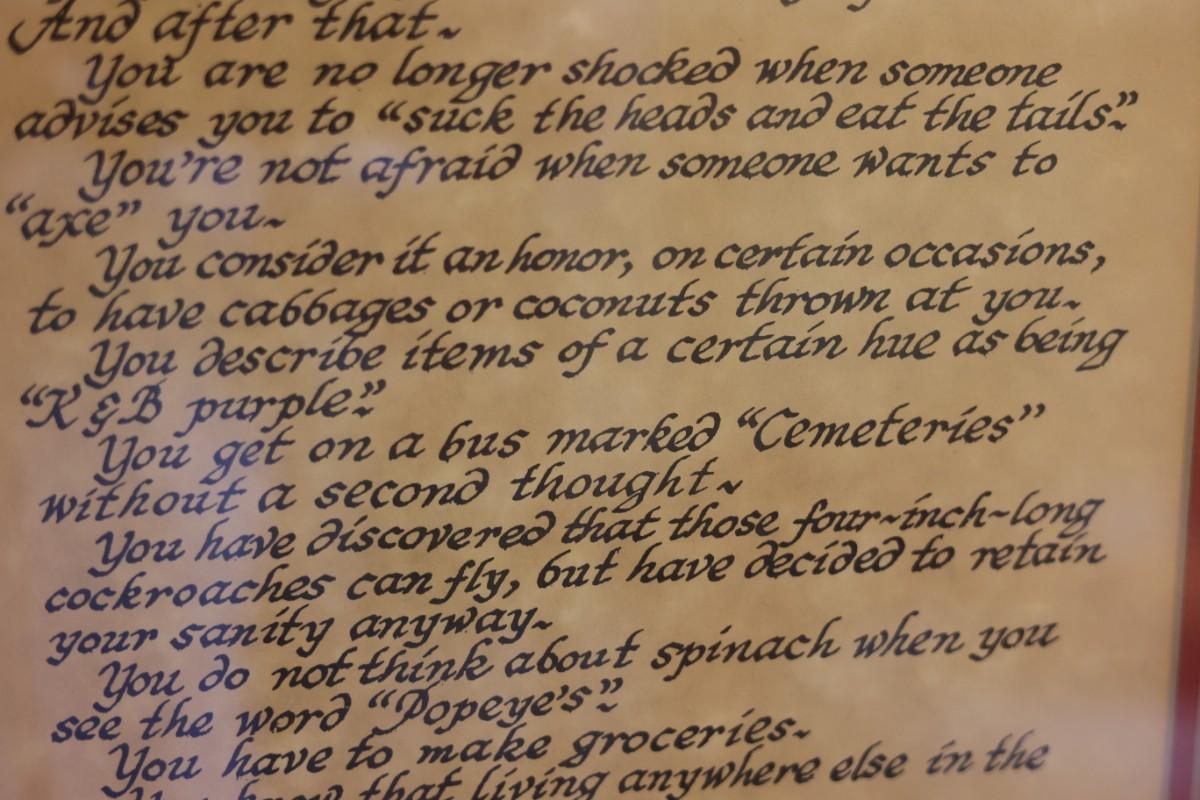 And after that~
You are no longer shocked when someone
advises you to “suck the heads and eat the tails”~
You’re not afraid when someone wants to
“axe” you~
You consider it an honor, on certain occasions,
to have cabbages or coconuts thrown at you~
You describe items of a certain hue as being
“K&B purple”~
You get on a bus marked “Cemeteries”
without a second thought~
You have discovered that those four~inch~long
cockroaches can fly, but have decided to retain
your sanity anyway~
You do not think about spinach when you
see the word “Popeye’s”~
You have to make groceries~
You know that living anywhere else in the